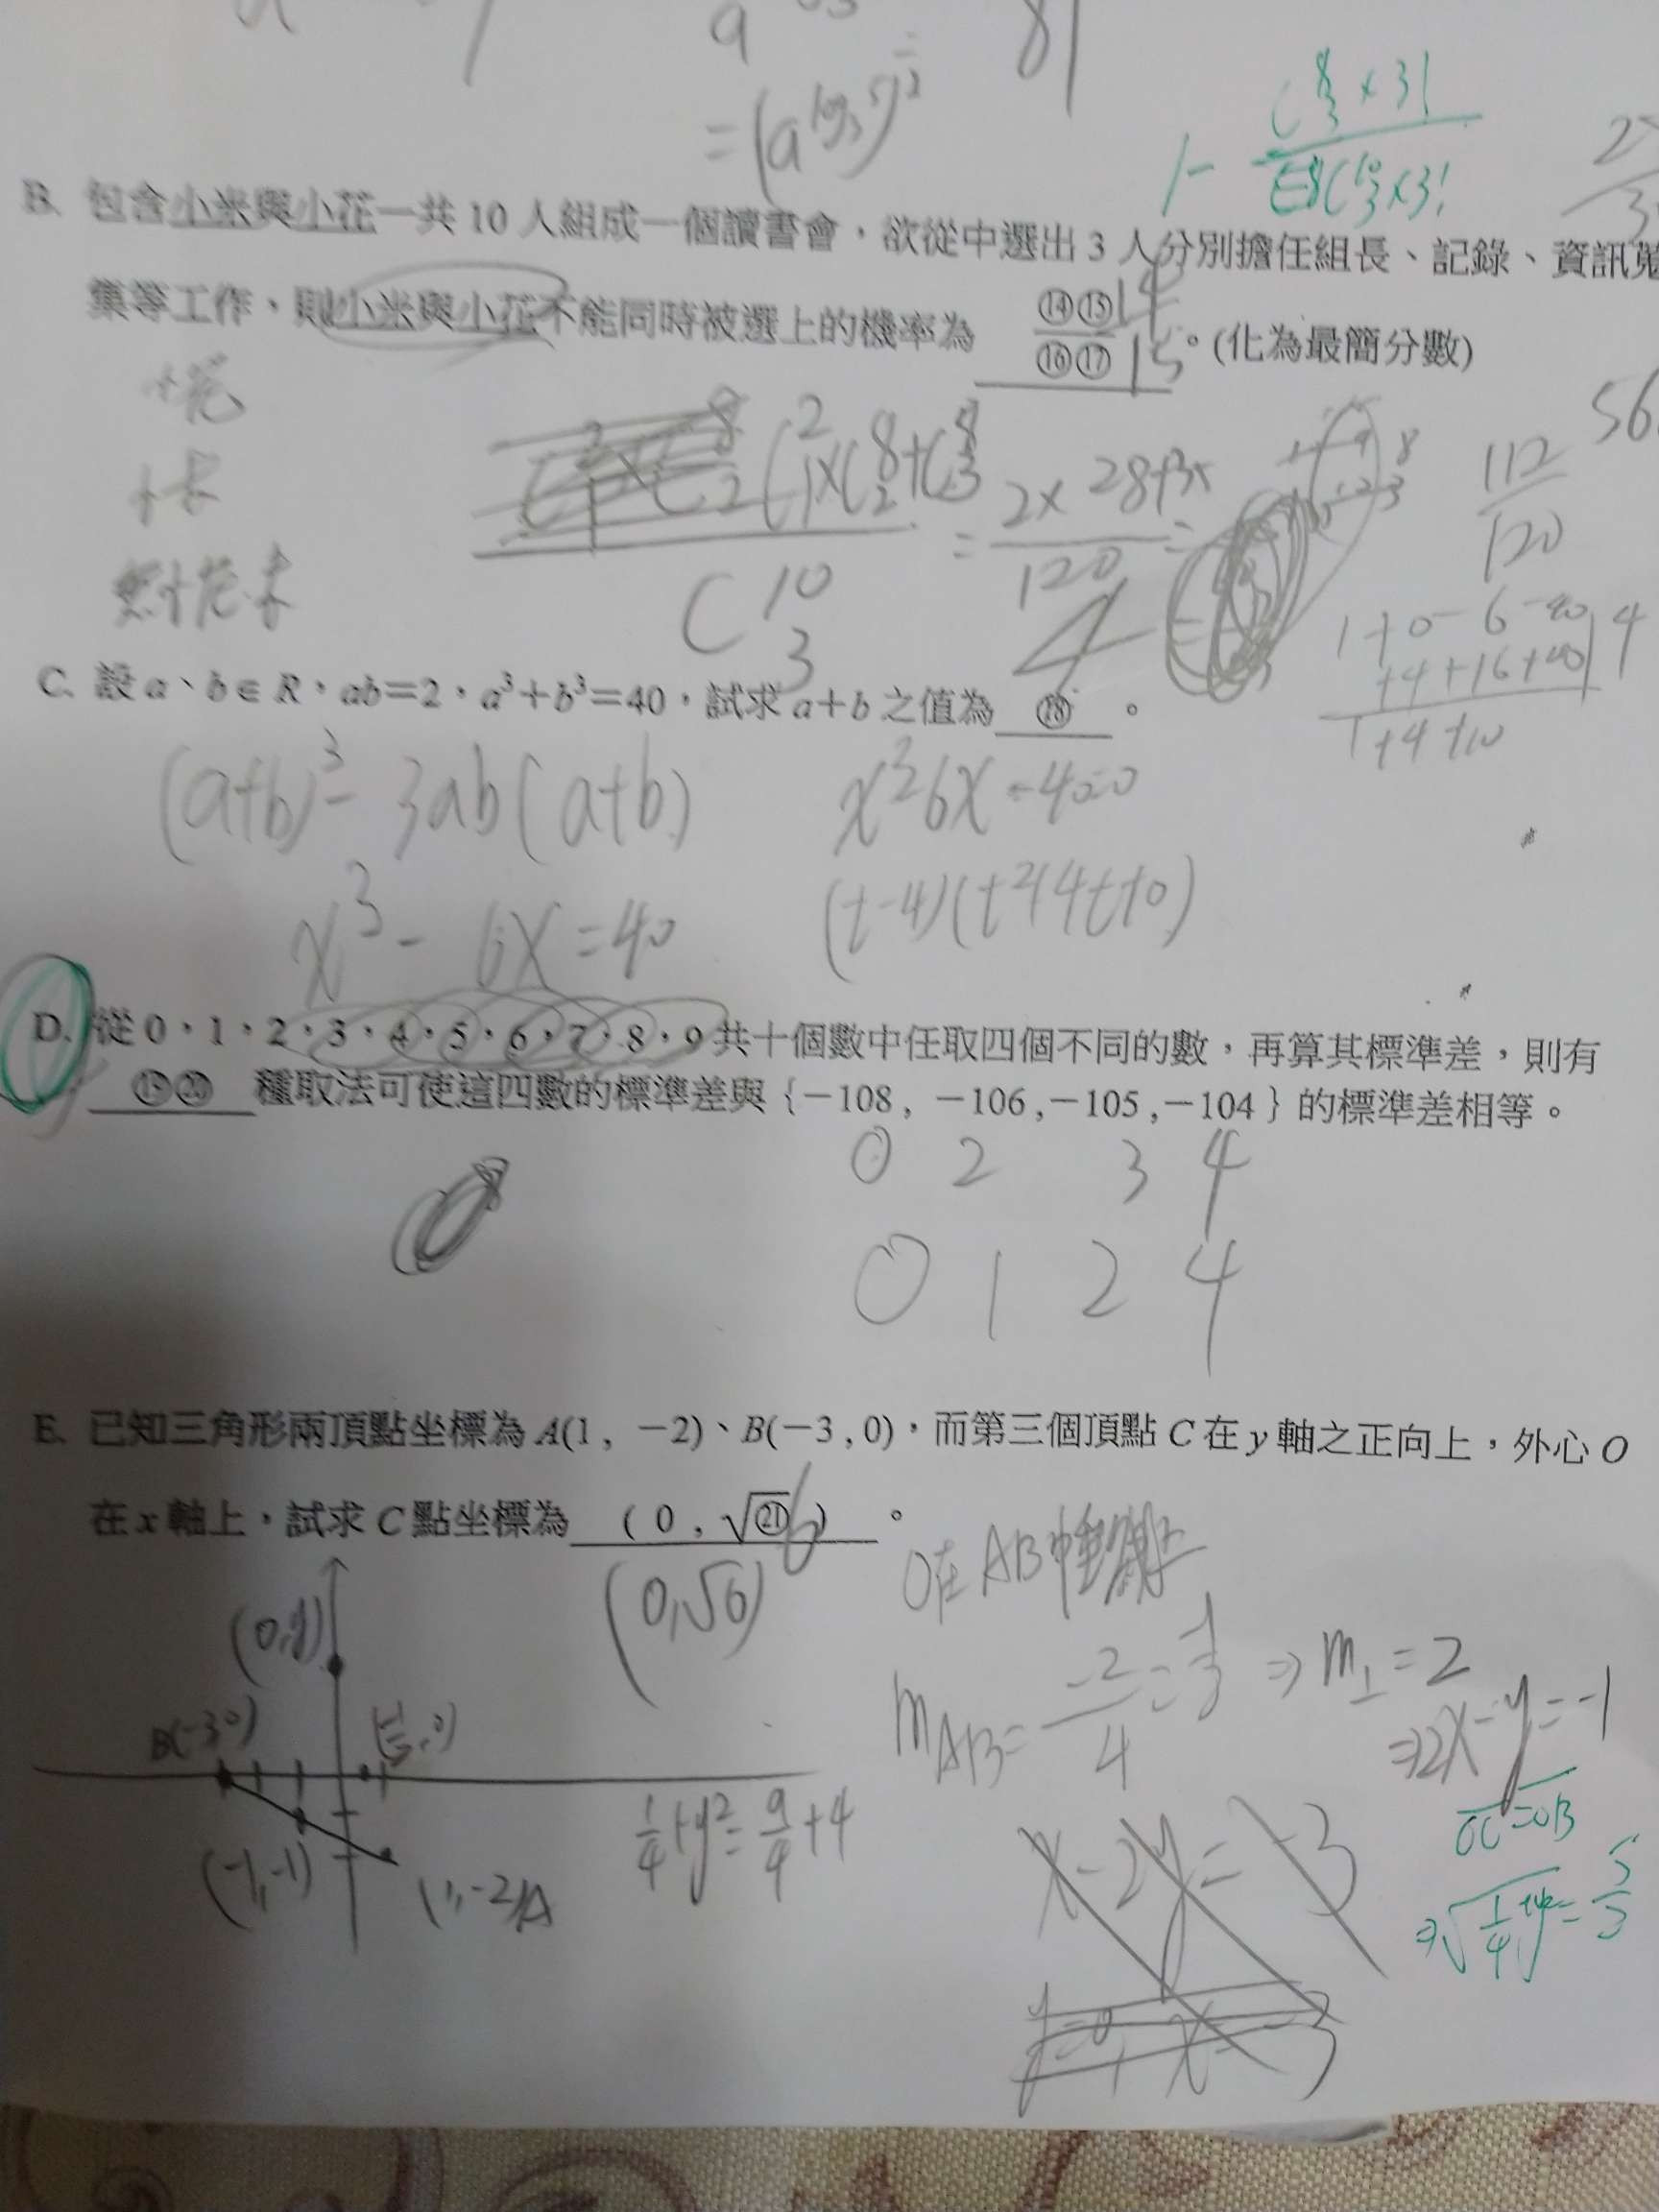 = (a^{log_3 5})^2
1 - \frac{C^8_3 × 3!}{C^{10}_3 × 3!}
B. 包含小米與小花一共 10 人組成一個讀書會，欲從中選出 3 人分別擔任組長、記錄、資訊蒐
集等工作，則小米與小花不能同時被選上的機率為 ⑭⑮/⑯⑰。(化為最簡分數)
14
15
+花
+米
無+花.米
C^2_1×C^8_2+C^8_3
C^{10}_3
120
112
120
56
1+0-6-40|4
+4+16+40
1+4+10
C. 設 a、b∈R，ab=2，a³+b³=40，試求 a+b 之值為 ⑱ 。
4
(a+b)³-3ab(a+b)
x³-6x=40
(t-4)(t²+4t+10)
D. 從 0，1，2，3，4，5，6，7，8，9 共十個數中任取四個不同的數，再算其標準差，則有
⑲⑳ 種取法可使這四數的標準差與 {-108, -106, -105, -104} 的標準差相等。
0 2 3 4
0 1 2 4
E. 已知三角形兩頂點坐標為 A(1, -2)、B(-3, 0)，而第三個頂點 C 在 y 軸之正向上，外心 O
在 x 軸上，試求 C 點坐標為 (0, √㉑) 。
6
(0,√6)
O在AB中垂線上
(0,y)
B(-3,0)
(-1,-1)
(1,-2)A
1/4+y²=9/4+4
m_{AB}=-2/4
⇒m⊥=2
⇒2x-y=-1
OC=OB
x-2y=-3
y=0, x=-3